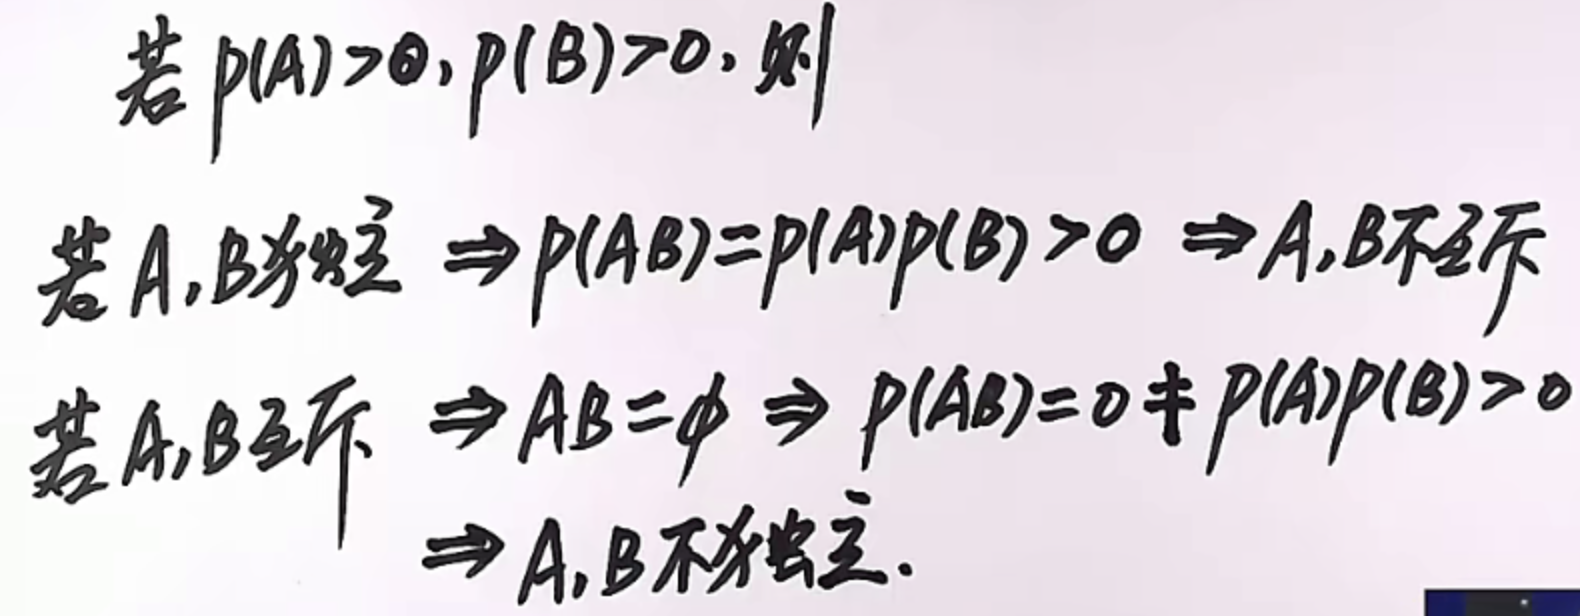 若 P(A)>0, P(B)>0, 则
若 A,B独立 ⇒ P(AB)=P(A)P(B)>0 ⇒ A,B不互斥
若 A,B互斥 ⇒ AB=ϕ ⇒ P(AB)=0≠P(A)P(B)>0
⇒ A,B不独立.